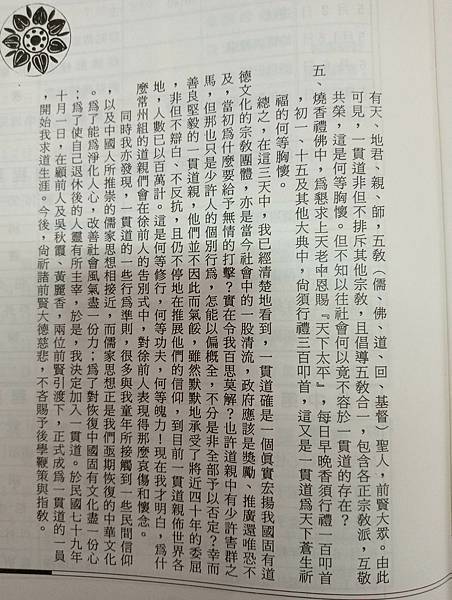 有天、地君、親、師，五教（儒、佛、道、回、基督）聖人，前賢大眾。由此
可見，一貫道非但不排斥其他宗教，且倡導五教合一，包含各正宗教派，互敬
共榮，這是何等胸懷。但不知以往社會何以竟不容於一貫道的存在？
五、燒香禮佛中，爲懇求上天老中恩賜『天下太平』，每日早晚香須行禮一百叩首
，初一、十五及其他大典中，尙須行禮三百叩首，這又是一貫道爲天下蒼生祈
福的何等胸懷。
總之，在這三天中，我已經清楚地看到，一貫道確是一個眞實宏揚我國固有道
德文化的宗教團體，亦是當今社會中的一股清流，政府應該是獎勵、推廣還唯恐不
及，當初爲什麼要給予無情的打擊？實在令我百思莫解？也許道親中有少許害群之
馬，但那也只是少許人的個別行爲，怎能以偏概全，不分是非全部予以否定？幸而
善良堅毅的一貫道親，他們並不因此而氣餒，雖然默默地承受了將近四十年的委屈
，非但不辯白、不反抗，且仍不停地在推展他們的信仰，到目前一貫道親佈世界各
地，人數已以百萬計。這是何等修行，何等功夫，何等魄力！現在我才明白，爲什
麼常州組的道親們會在徐前人的告別式中，對徐前人表現得那麼哀傷和懷念。
同時我亦發現，一貫道的一些行爲準則，很多與我童年所接觸到一些民間信仰
，以及中國人所推崇的儒家思想相接近，而儒家思想正是我們亟期恢復的中華文化
。爲了能爲淨化人心，改善社會風氣盡一份力；爲了對恢復中國固有文化盡一份心
；爲了使自己退休後的人靈有所主宰，於是，我決定加入一貫道。於民國七十九年
十月一日，在顧前人及吳秋霞、黃麗香，兩位前賢引渡下，正式成爲一貫道的一員
，開始我求道生涯。今後，尙祈諸前賢大德慈悲，不吝賜予後學鞭策與指教。